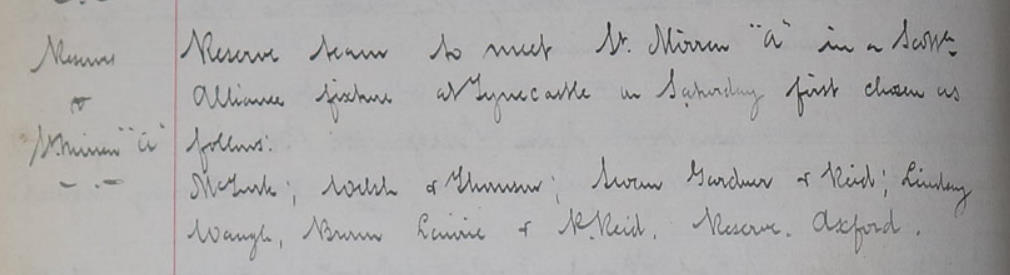 Reserves
v
St. Mirren "A"
Reserve team to meet St. Mirren "A" in a Scottn
Alliance fixture at Tynecastle on Saturday first chosen as
follows:
McGurk; Welsh & Thomson; Gardner & Reid; Lindsay
Waugh, Brown Laurie & R. Reid. Reserve. Oxford.